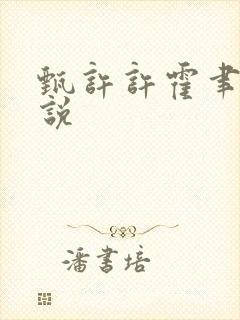 甄許許霍聿
說
潘書培